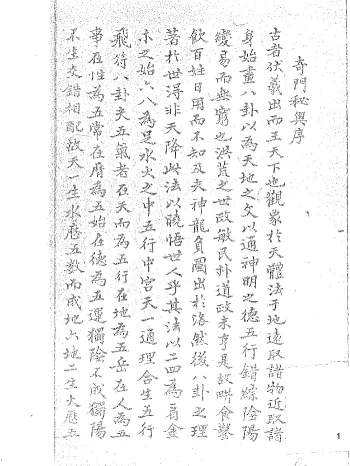 奇門秘奧序
古者伏羲出而王天下也觀象於天體法于地遠取諸物近取諸
身始畫八卦以為天地之文以通神明之德五行錯綜陰陽
變易而無窮也洪荒之世政敏民朴道政未亨是故畊食鑿
飲百姓日用而不知及夫神龍負圖出於洛然後八卦之理
著於世得非天降此法以曉悟世人乎其法以二四為肩金
木之始六八為足水火之中五行中宮天一通理合生五行
飛符八卦夫五氣者在天而為五行在地為五岳在人為五
事在性為五常在府為五始在德為五運獨陰不成獨陽
不生交錯相配故天一生水應五數而成地六地二生火應
1